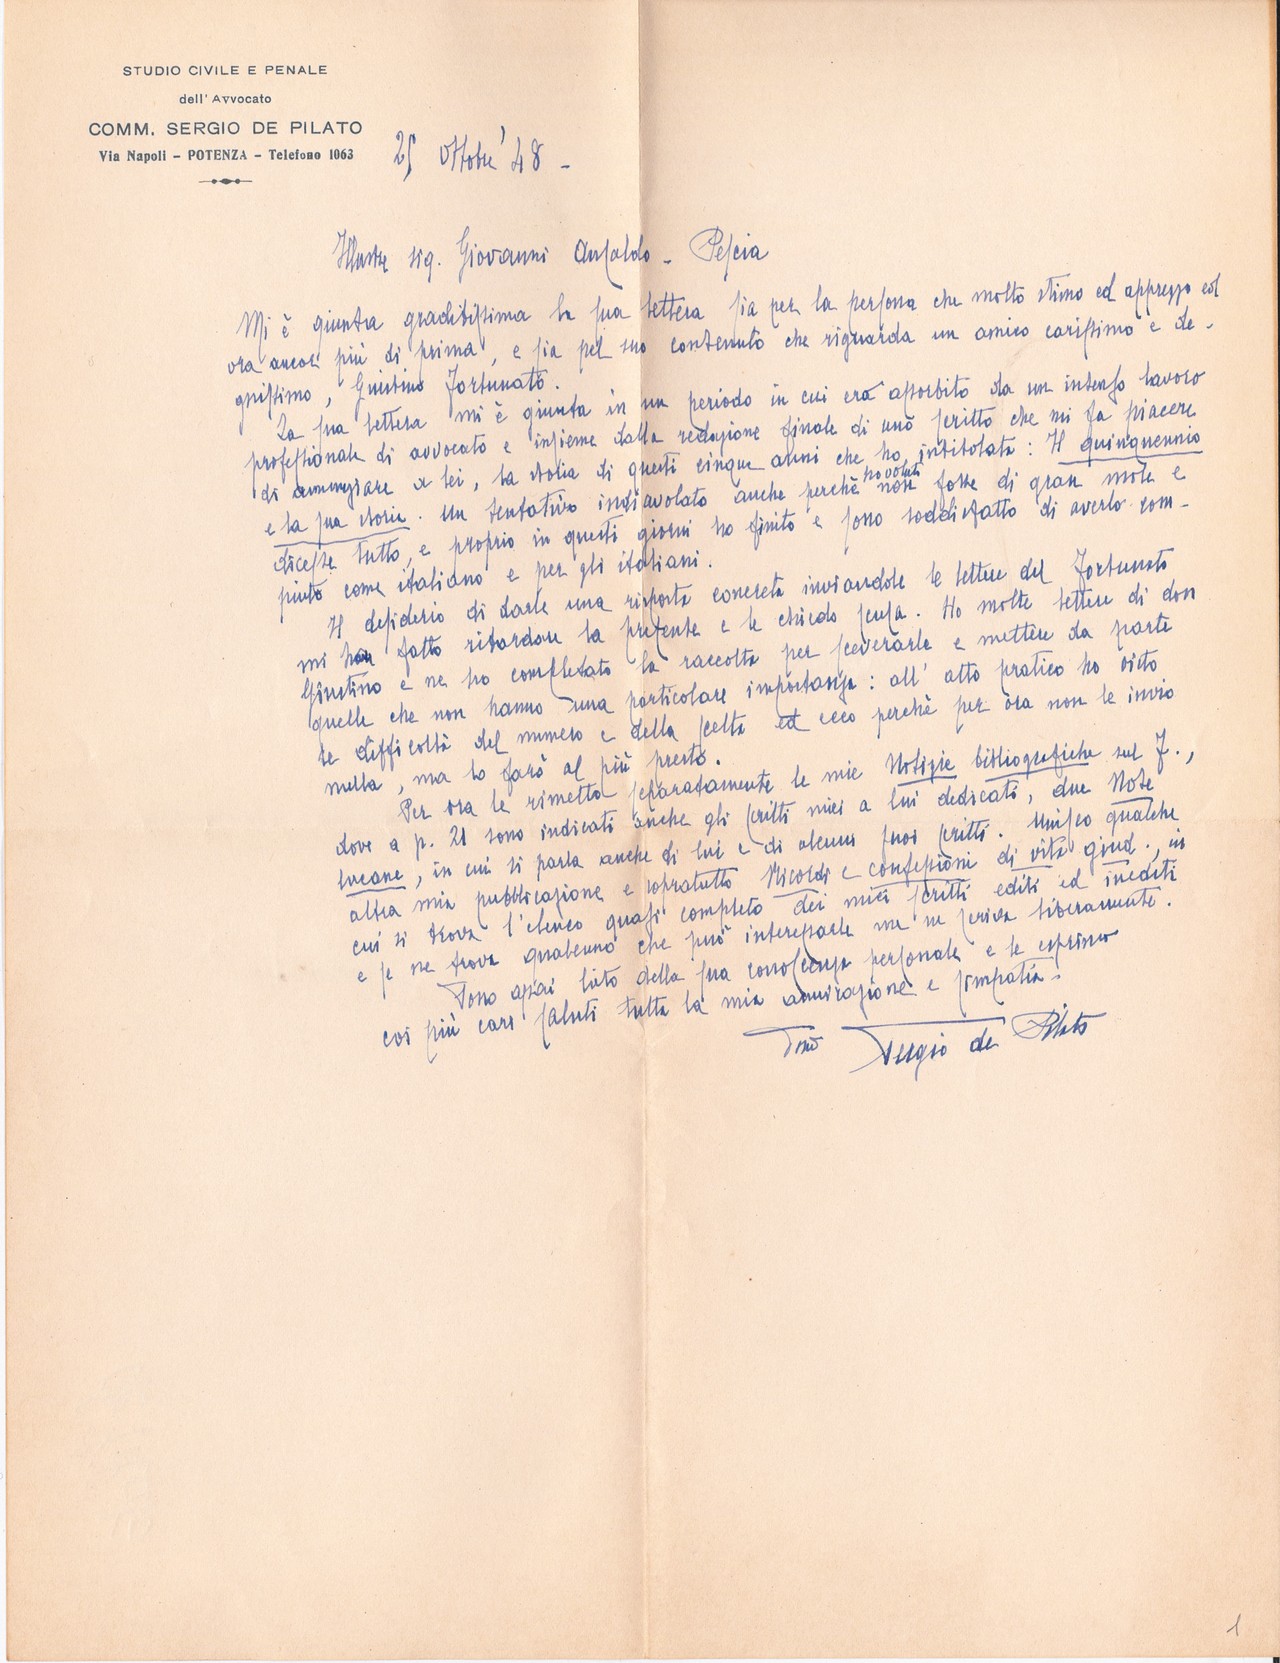 STUDIO CIVILE E PENALE
dell' Avvocato
COMM. SERGIO DE PILATO
Via Napoli – POTENZA – Telefono 1063
25 ottobre '48 -
Illustre sig. Giovanni Ansaldo - Pescia
Mi è giunta graditissima la sua lettera sia per la persona che molto stimo ed apprezzo ed
ora ancor più di prima, e sia pel suo contenuto che riguarda un amico carissimo e de-
gnissimo, Giustino Fortunato.
La sua lettera mi è giunta in un periodo in cui era assorbito da un intenso lavoro
professionale di avvocato e insieme dalla redazione finale di uno scritto che mi fa piacere
di annunziare a lei, la storia di questi cinque anni che ho intitolata: Il quinquennio
e la sua storia. Un tentativo indiavolato anche perchè ho voluto non fosse di gran mole e
dicesse tutto, e proprio in questi giorni ho finito e sono soddisfatto di averlo com-
piuto come italiano e per gli italiani.
Il desiderio di darle una risposta concreta inviandole le lettere del Fortunato
mi han fatto ritardare la presente e le chiedo scusa. Ho molte lettere di don
Giustino e ne ho completato la raccolta per sceverarle e mettere da parte
quelle che non hanno una particolare importanza: all' atto pratico ho visto
le difficoltà del numero e della scelta ed ecco perchè per ora non le invio
nulla, ma lo farò al più presto.
Per ora le rimetto separatamente le mie Notizie bibliografiche sul F.,
dove a p. 21 sono indicati anche gli scritti miei a lui dedicati, due Note
lucane, in cui si parla anche di lui e di alcuni suoi scritti. Unisco qualche
altra mia pubblicazione e sopratutto Ricordi e confessioni di vita giud., in
cui si trova l'elenco quasi completo dei miei scritti editi ed inediti
e se ne trova qualcuno che può interessarle me ne scriva liberamente.
Sono assai lieto della sua conoscenza personale e le esprimo
coi più cari saluti tutta la mia ammirazione e simpatia.
Suo Sergio de Pilato
1